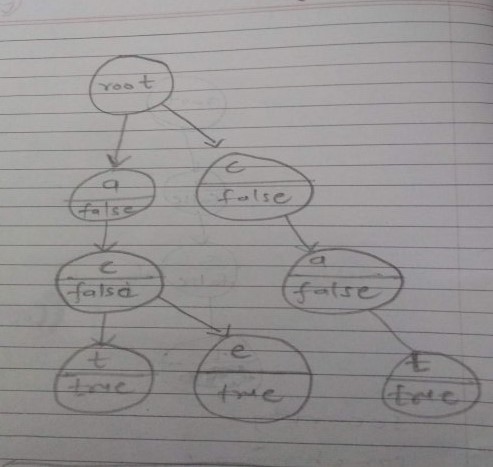 root
a
false
c
false
c
false
a
false
t
true
e
true
t
true